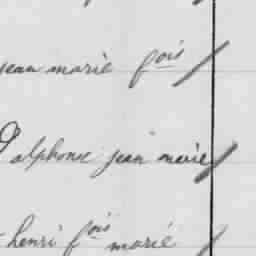 jean marie fois
alphonse jean marie
henri fois marié